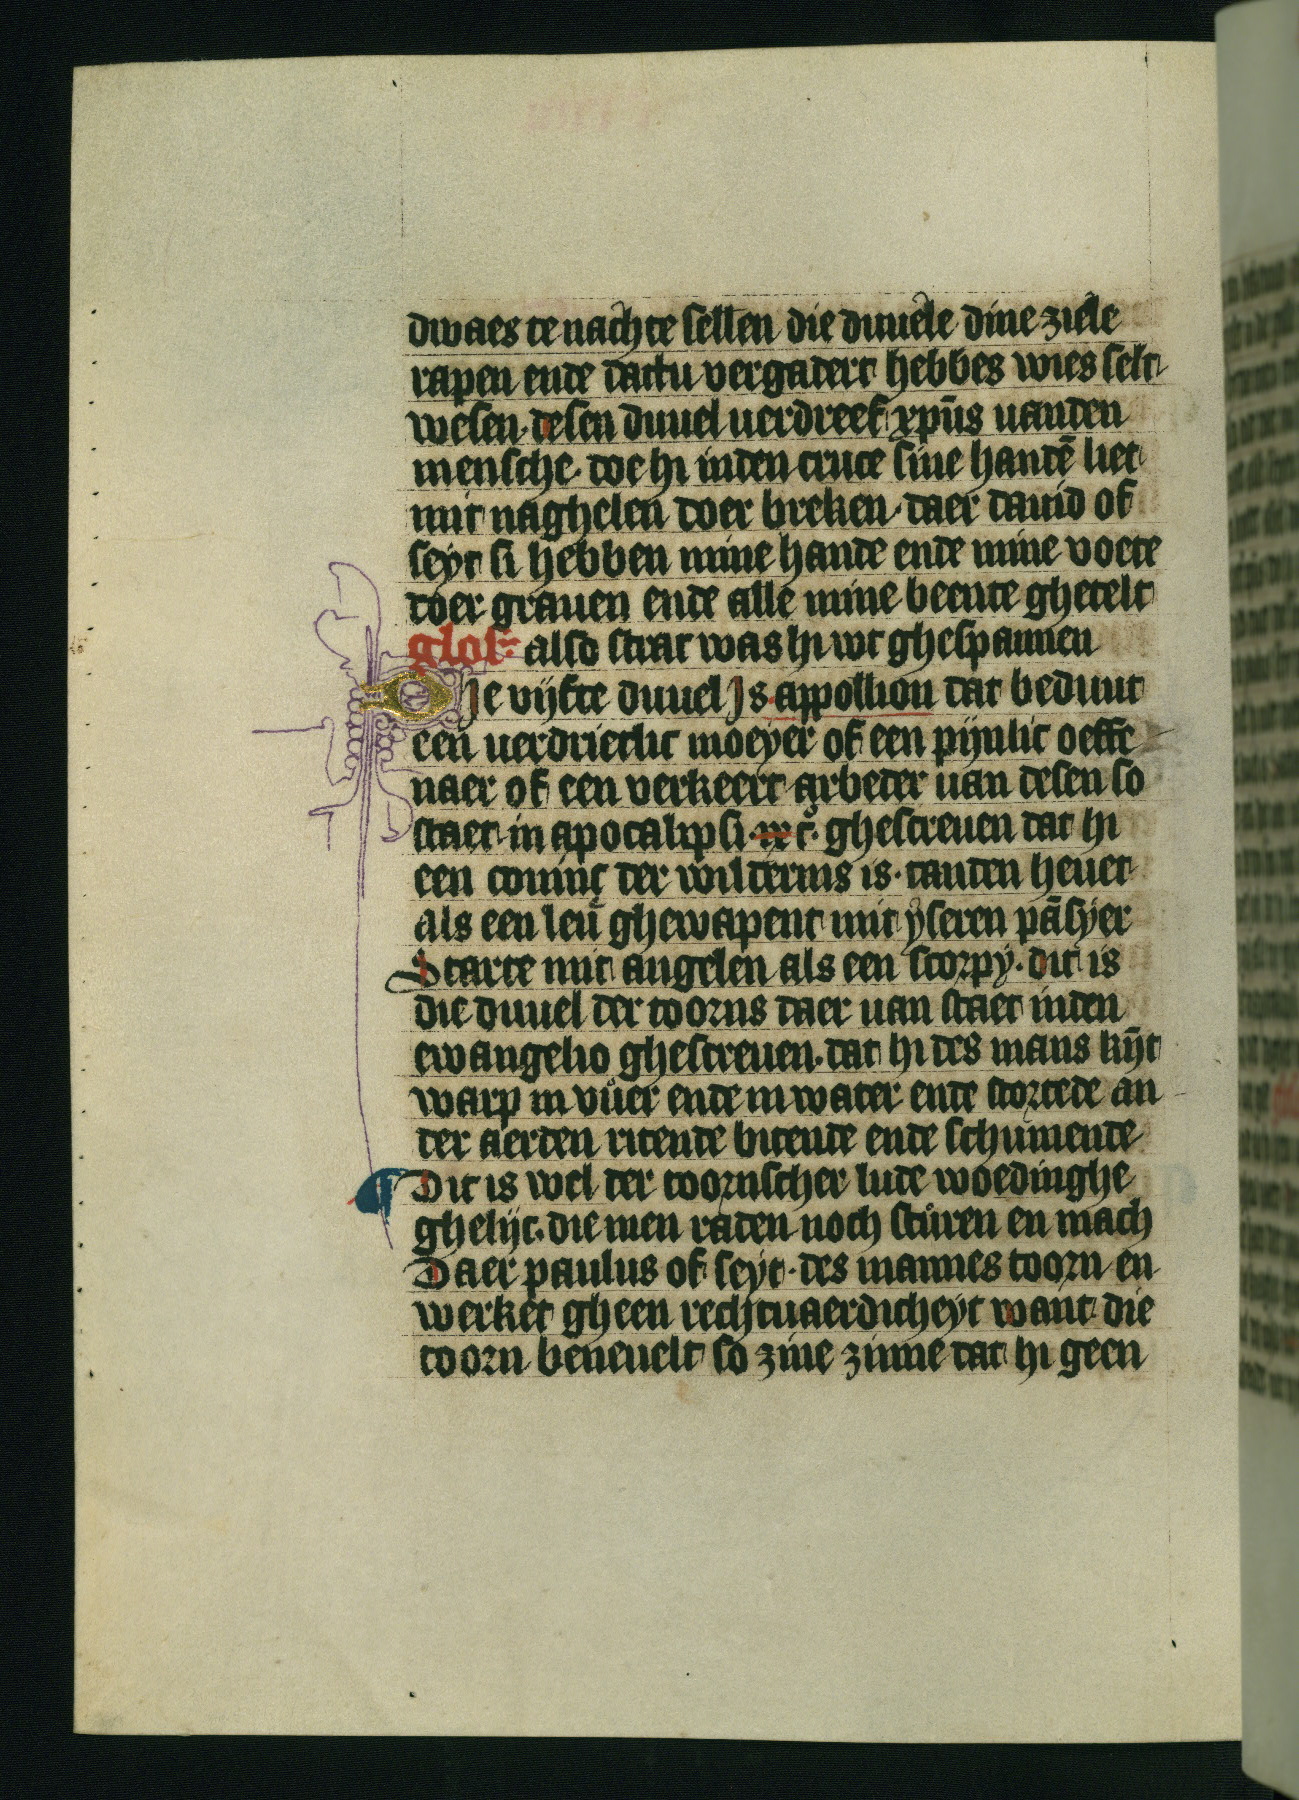 dwaes te nachte sellen die duuele dine ziele
rapen ende dattu vergadert hebbes wies selt
wesen. desen duuel uerdreef xpūs uanden
mensche. doe hi inden cruce sine handē liet
mit naghelen doer breken. daer dauid of
seyt si hebben mine hande ende mine voete
doer grauen ende alle mine beente ghetelt
glos͛ also strac was hi wt ghespannen
Die vijfte duuel Is appollion dat beduut
een uerdrietlic moeyer of een pijnlic oeffe
naer of een verkeert arbeder uan desen so
staet in apocalipsi. ix cͦ. ghescreuen dat hi
een coninc der wildernis is. tanden heuet
als een leu ghewapent mit yseren pāsyer
Starte mit angelen als een scorpy. dit is
die duuel der toorns daer uan staet inden
ewangelio ghescreuen. dat hi des mans kȳt
warp in vuer ende in water ende stortede an
der aerden ritende bitende ende schumende
Dit is wel der toornscher lude woedinghe
ghelijc. die men raden noch sturen en mach
Daer paulus of seyt. des mannes toorn en
werket gheen rechtuaerdicheyt want die
toorn beneuelt so zine zinne dat hi geen